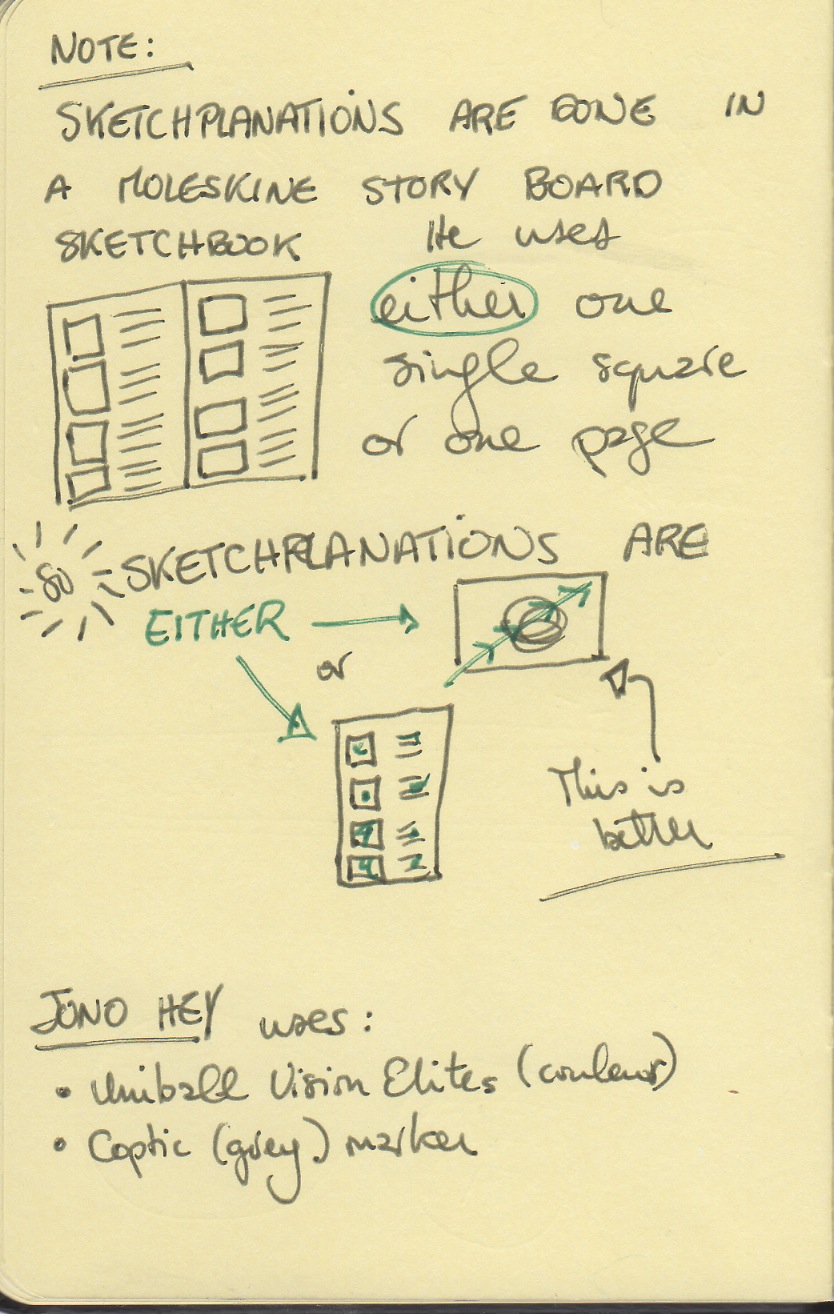 NOTE:
SKETCHPLANATIONS ARE DONE IN
A MOLESKINE STORY BOARD
SKETCHBOOK He uses
either one
single square
or one page
SO SKETCHPLANATIONS ARE
EITHER
or
This is
better
JONO HEY uses:
• Uniball Vision Elites (couleur)
• Coptic (grey) marker